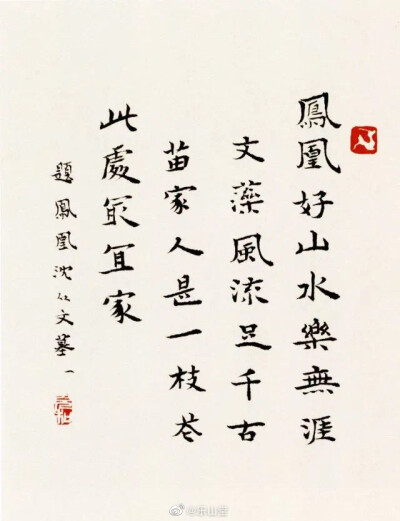 鳳凰好山水樂無涯
文藻風流足千古
苗家人是一枝花
此處最宜家
題鳳凰沈從文墓一